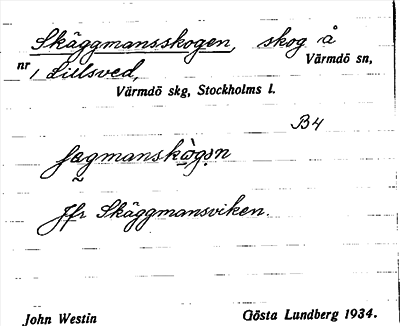 Skäggmansskogen, skog å
Värmdö sn,
nr 1 Lillsved,
Värmdö skg, Stockholms l.
B4
Jfr Skäggmansviken.
John Westin Gösta Lundberg 1934.